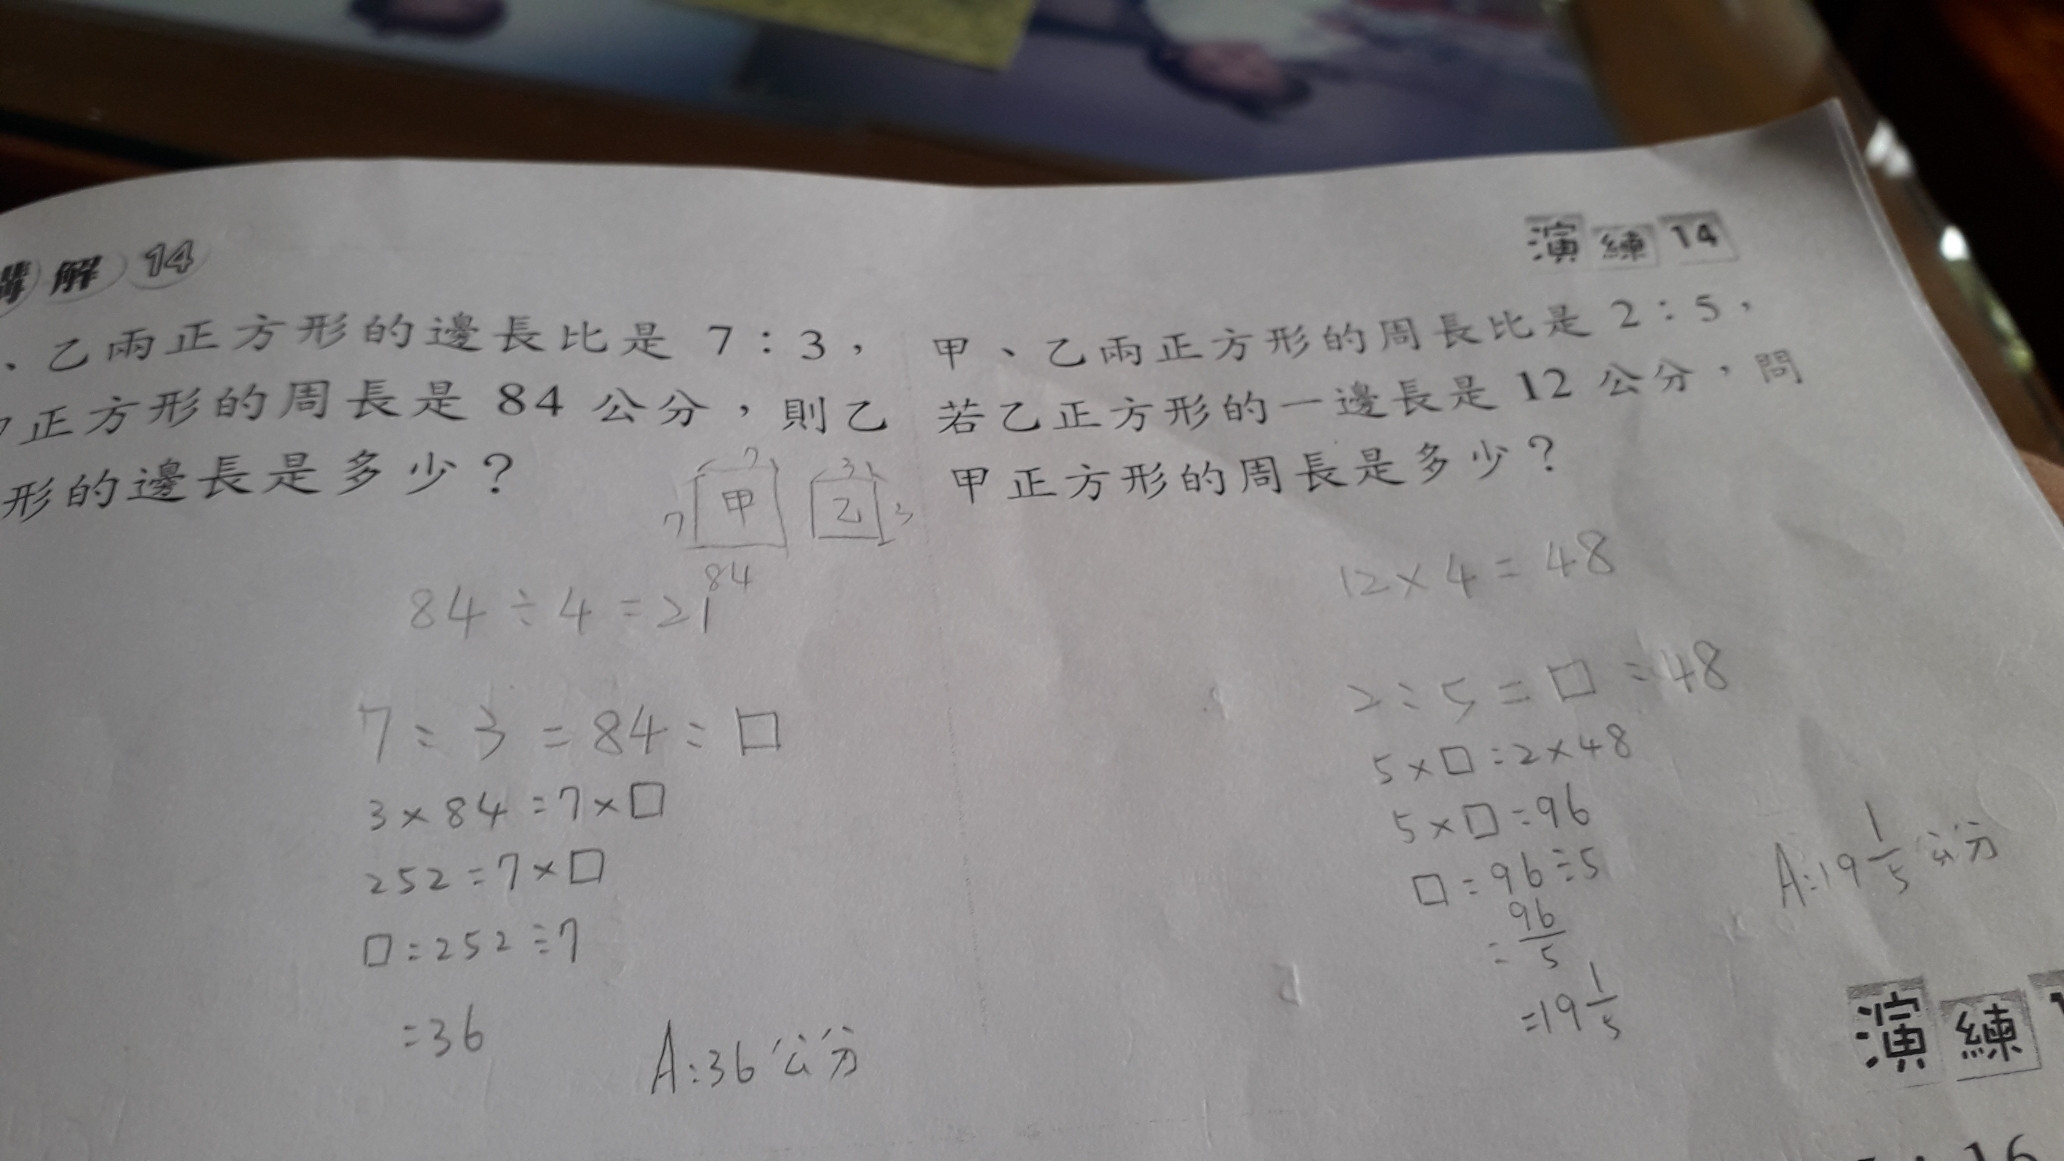 講解14
、乙兩正方形的邊長比是 7：3，
正方形的周長是 84 公分，則乙
形的邊長是多少？
7
3
7
甲
乙
3
84
84÷4=21
7:3=84:□
3×84=7×□
252=7×□
□=252÷7
=36
A:36公分
演練14
甲、乙兩正方形的周長比是 2：5，
若乙正方形的一邊長是 12 公分，問
甲正方形的周長是多少？
12×4=48
2:5=□:48
5×□=2×48
5×□=96
□=96÷5
=96/5
=19 1/5
A:19 1/5 公分
演練